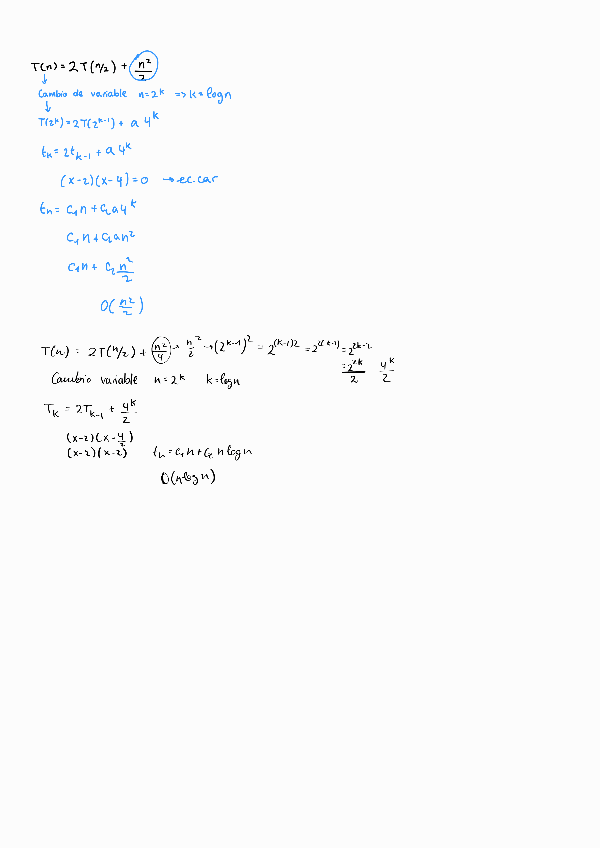 T(n) = 2T(n/2) + n²/2
↓
Cambio de variable n=2^k => k=logn
↓
T(2^k) = 2T(2^(k-1)) + a 4^k
t_k = 2t_(k-1) + a 4^k
(x-2)(x-4)=0 → ec.car
t_n = c₁n + c₂a4^k
c₁n + c₂an²
c₁n + c₂ n²/2
O(n²/2)
T(n) = 2T(n/2) + n²/4 → n/2² → (2^(k-1))² = 2^((k-1)2) = 2^(2(k-1)) = 2^(2k-2)
= 2^(2k)/2 4^k/2
Cambio variable n=2^k k=logn
T_k = 2T_(k-1) + 4^k/2
(x-2)(x-4/2)
(x-2)(x-2) t_n = c₁n + c₂ n logn
O(n log n)